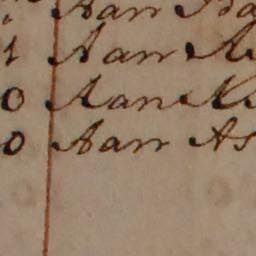 Aan
1 Aan
0 Aan
0 Aan As